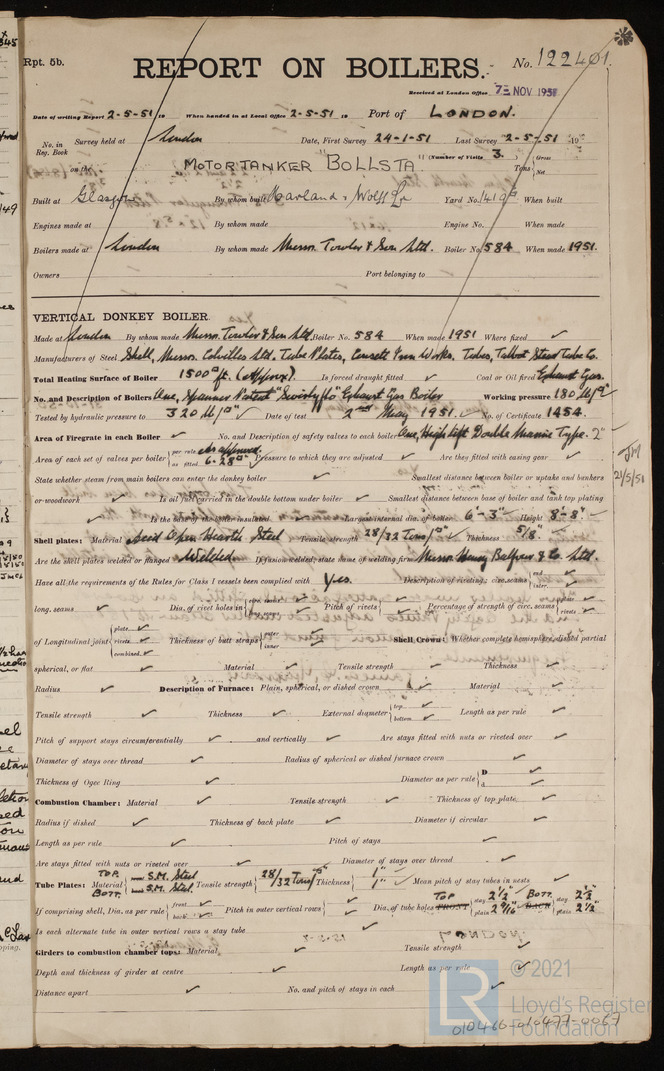 Rpt. 5b.
REPORT ON BOILERS.
No. 122401.
Received at London Office 7 NOV 1951
Date of writing Report 2-5-51 19 When handed in at Local Office 2-5-51 19 Port of LONDON.
No. in Reg. Book Survey held at London Date, First Survey 24-1-51 Last Survey 2-5-51 19
on the MOTOR TANKER "BOLLSTA (Number of Visits 3) Tons Gross Net
Built at Glasgow By whom built Harland & Wolff Ld Yard No. 1419 When built
Engines made at By whom made Engine No. When made
Boilers made at London By whom made Messrs. Towler & Son Ltd. Boiler No. 584 When made 1951.
Owners Port belonging to
VERTICAL DONKEY BOILER.
Made at London By whom made Messrs. Towler & Son Ltd. Boiler No. 584 When made 1951 Where fixed ✓
Manufacturers of Steel Shell, Messrs. Colvilles Ltd. Tube Plates, Consett Iron Works. Tubes, Talbot Stead Tube Co.
Total Heating Surface of Boiler 1500 □ft. (Approx). Is forced draught fitted ✓ Coal or Oil fired Exhaust Gas.
No. and Description of Boilers One, Spanner Patent "Swirlyflo" Exhaust Gas Boiler Working pressure 180 lb/□"
Tested by hydraulic pressure to 320 lb/□" ✓ Date of test 2nd May 1951. ✓ No. of Certificate 1454.
Area of Firegrate in each Boiler ✓ No. and Description of safety valves to each boiler One, High Lift Double Marine Type. 2"
Area of each set of valves per boiler per rule As approved as fitted 6.28 □" Pressure to which they are adjusted ✓ Are they fitted with easing gear ✓
State whether steam from main boilers can enter the donkey boiler ✓ Smallest distance between boiler or uptake and bunkers
or woodwork ✓ Is oil fuel carried in the double bottom under boiler ✓ Smallest distance between base of boiler and tank top plating
✓ Is the base of the boiler insulated ✓ Largest internal dia. of boiler 6'-3" Height 8'-8" ✓
Shell plates: Material Acid Open Hearth Steel Tensile strength 28/32 Tons/□" ✓ Thickness 5/8" ✓
Are the shell plates welded or flanged Welded If fusion welded, state name of welding firm Messrs Henry Balfour & Co. Ltd.
Have all the requirements of the Rules for Class I vessels been complied with Yes. Description of riveting: circ. seams end inter.
long. seams ✓ Dia. of rivet holes in circ. seams long. seams ✓ Pitch of rivets ✓ Percentage of strength of circ. seams plate rivets ✓
of Longitudinal joint plate ✓ rivets ✓ combined ✓ Thickness of butt straps outer inner ✓ Shell Crown: Whether complete hemisphere, dished partial
spherical, or flat ✓ Material ✓ Tensile strength ✓ Thickness ✓
Radius ✓ Description of Furnace: Plain, spherical, or dished crown ✓ Material ✓
Tensile strength ✓ Thickness ✓ External diameter top ✓ bottom ✓ Length as per rule ✓
Pitch of support stays circumferentially ✓ and vertically ✓ Are stays fitted with nuts or riveted over ✓
Diameter of stays over thread ✓ Radius of spherical or dished furnace crown ✓
Thickness of Ogee Ring ✓ Diameter as per rule D ✓ d ✓
Combustion Chamber: Material ✓ Tensile strength ✓ Thickness of top plate ✓
Radius if dished ✓ Thickness of back plate ✓ Diameter if circular ✓
Length as per rule ✓ Pitch of stays ✓
Are stays fitted with nuts or riveted over ✓ Diameter of stays over thread ✓
Tube Plates: Material TOP S.M. Steel BOTT. S.M. Steel Tensile strength 28/32 Tons/□" Thickness 1" 1" ✓ Mean pitch of stay tubes in nests ✓
If comprising shell, Dia. as per rule front ✓ back ✓ Pitch in outer vertical rows ✓ Dia. of tube holes TOP FRONT stay 2 1/2" plain 2 9/16" BOTT. BACK stay 2 1/2" plain 2 1/2"
Is each alternate tube in outer vertical rows a stay tube ✓
Girders to combustion chamber tops: Material ✓ Tensile strength ✓
Depth and thickness of girder at centre ✓ Length as per rule ✓
Distance apart ✓ No. and pitch of stays in each ✓
JM
21/5/51
© 2021
LR Lloyd's Register Foundation
010466-010477-0067